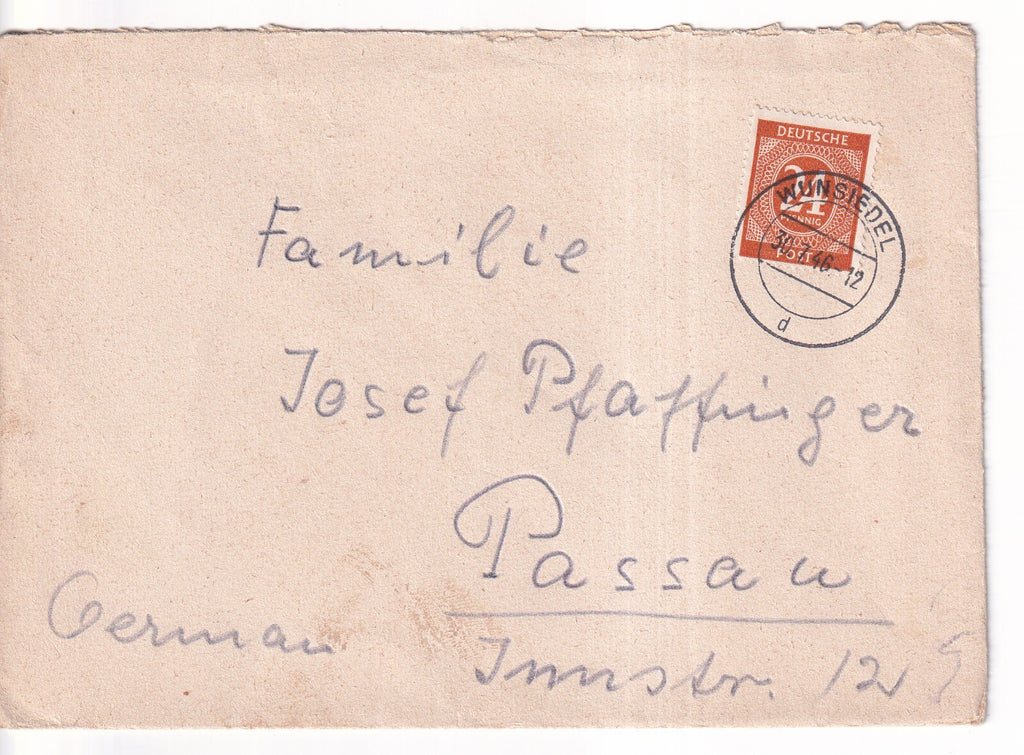 DEUTSCHE
24
PFENNIG
POST
WUNSIEDEL
30.7.46-12
d
Familie
Josef Pfaffinger
Passau
German
Innstr. 12